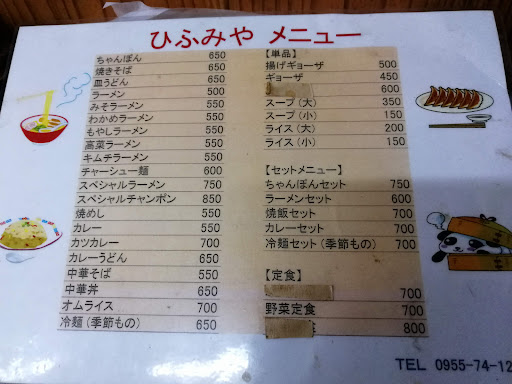 ひふみや メニュー
ちゃんぽん 650
焼きそば 650
皿うどん 650
ラーメン 500
みそラーメン 550
わかめラーメン 550
もやしラーメン 550
高菜ラーメン 550
キムチラーメン 550
チャーシュー麺 600
スペシャルラーメン 750
スペシャルチャンポン 850
焼めし 550
カレー 550
カツカレー 700
カレーうどん 650
中華そば 550
中華丼 650
オムライス 700
冷麺(季節もの) 650
【単品】
揚げギョーザ 500
ギョーザ 450
600
スープ(大) 350
スープ(小) 150
ライス(大) 200
ライス(小) 150
【セットメニュー】
ちゃんぽんセット 750
ラーメンセット 600
焼飯セット 700
カレーセット 700
冷麺セット(季節もの) 700
【定食】
700
野菜定食 700
800
TEL 0955-74-12